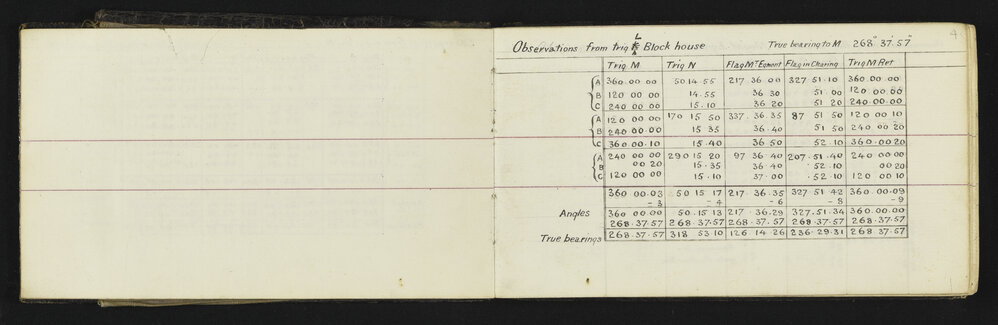 4
L
Observations from trig Block house True bearing to M 268° 37' 57"
Trig M Trig N Flag Mt Egmont Flag in Clearing Trig M Ret
A 360 00 00 50 14 55 217 36 00 327 51 10 360 00 00
B 120 00 00 14 55 36 30 51 00 120 00 00
C 240 00 00 15 10 36 20 51 20 240 00 00
A 120 00 00 170 15 50 337 36 35 87 51 50 120 00 10
B 240 00 00 15 35 36 40 51 50 240 00 20
C 360 00 10 15 40 36 50 52 10 360 00 20
A 240 00 00 290 15 20 97 36 40 207 51 40 240 00 00
B 00 20 15 35 36 40 52 10 00 20
C 120 00 00 15 10 37 00 52 10 120 00 10
360 00 03 50 15 17 217 36 35 327 51 42 360 00 09
- 3 - 4 - 6 - 8 - 9
Angles 360 00 00 50 15 13 217 36 29 327 51 34 360 00 00
268 37 57 268 37 57 268 37 57 268 37 57 268 37 57
True bearings 268 37 57 318 53 10 126 14 26 236 29 31 268 37 57